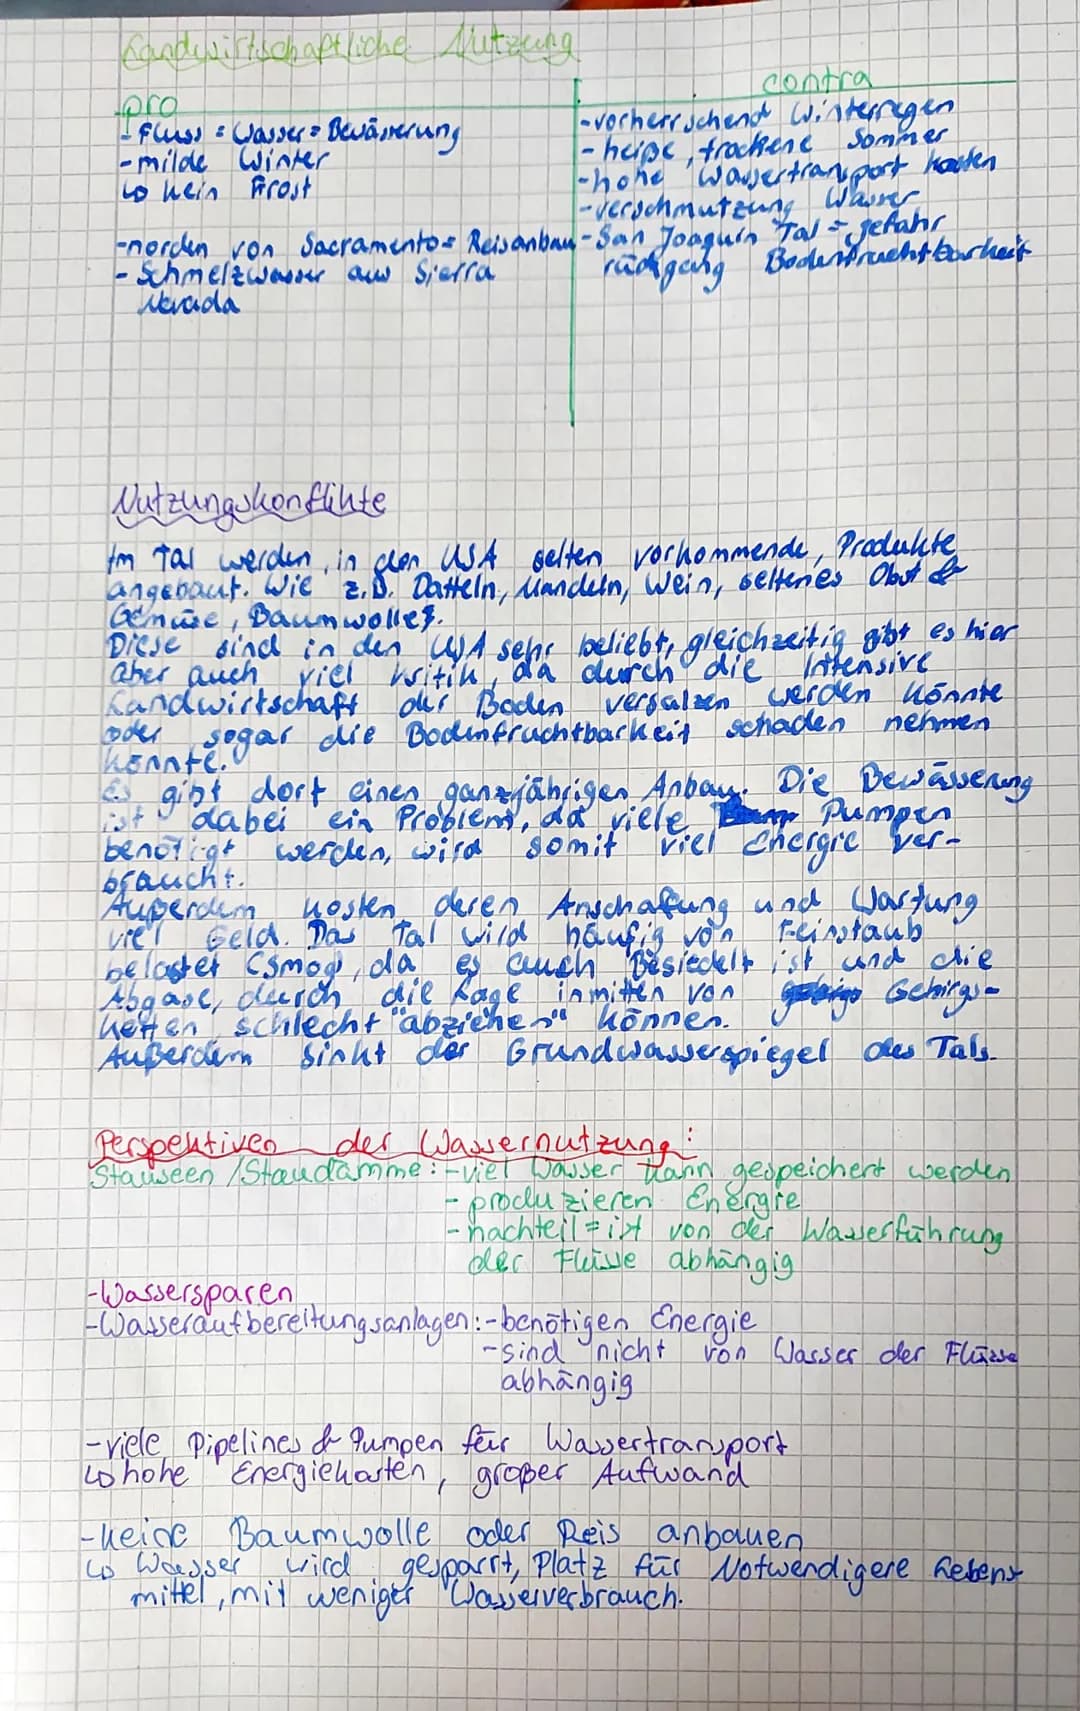 Landwirtschaftliche Nutzung
pro
- Fluss = Wasser = Bewässerung
- milde Winter
↳ kein Frost
- norden von Sacramento = Reisanbau
- Schmelzwasser aus Sierra
Nevada
contra
- vorherrschend Winterregen
- heiße, trockene Sommer
- hohe Wassertransport kosten
- verschmutzung Wasser
- San Joaquin Tal = gefahr
rückgang Bodenfruchtbarkeit
Nutzungskonflikte
Im Tal werden, in den USA selten vorkommende, Produkte
angebaut. Wie z.B. Datteln, Mandeln, Wein, seltenes Obst &
Gemüse, Baumwolle.
Diese sind in den USA sehr beliebt, gleichzeitig gibt es hier
aber auch viel kritik, da durch die Intensive
Landwirtschaft der Boden versalzen werden könnte
oder sogar die Bodenfruchtbarkeit schaden nehmen
könnte.
Es gibt dort einen ganzjährigen Anbau. Die Bewässerung
ist dabei ein Problem, da viele Pumpen
benötigt werden, wird somit viel Energie ver-
braucht.
Außerdem kosten deren Anschafung und Wartung
viel Geld. Das Tal wird häufig von Feinstaub
belastet (Smog), da es auch Besiedelt ist und die
Abgase, durch die Lage inmitten von Gebirgs-
ketten schlecht "abziehen" können.
Außerdem sinkt der Grundwasserspiegel des Tals.
Perspektiven der Wassernutzung:
Stauseen / Staudämme: - viel Wasser kann gespeichert werden
- produzieren Energie
- nachteil = ist von der Wasserführung
der Flüsse abhängig
- Wassersparen
- Wasseraufbereitungsanlagen: - benötigen Energie
- sind nicht von Wasser der Flüsse
abhängig
- viele Pipelines & Pumpen für Wassertransport
↳ hohe Energiekosten, großer Aufwand
- keine Baumwolle oder Reis anbauen
↳ Wasser wird gesparrt, Platz für Notwendigere Lebens
mittel, mit weniger Wasserverbrauch.